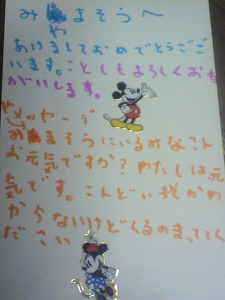 みやまそうへ
あけましておめでとうござ
います。ことしもよろしくおね
がいします。
メッセージ
みやまそうにいるみなさん
お元気ですか?わたしは元
気です。こんどいつ行くかわ
からないけどくるのまっててく
ださい